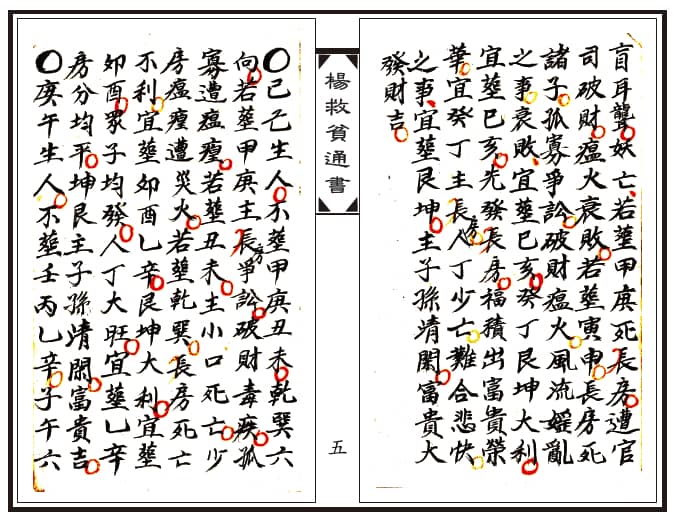 盲耳聾妖亡若塟甲庚死長房遭官
司破財瘟火衰敗若塟寅申長房死
諸子孤寡爭訟破財瘟火風流婬亂
之事衰敗宜塟巳亥癸丁艮坤大利
宜塟巳亥先發長房福積出富貴榮
華宜癸丁主長房人丁少亡難合悲快
之事宜塟艮坤主子孫清閑富貴大
發財吉
楊救貧通書
五
〇己乙生人不塟甲庚丑未乾巽六
向若塟甲庚主長房爭訟破財毒疾孤
寡遭瘟癀若塟丑未主小口死亡少
房瘟癀遭災火若塟乾巽長房死亡
不利宜塟卯酉乙辛艮坤大利宜塟
卯酉眾子均發人丁大旺宜塟乙辛
房分均平坤艮主子孫清閑富貴吉
〇庚午生人不塟壬丙乙辛子午六